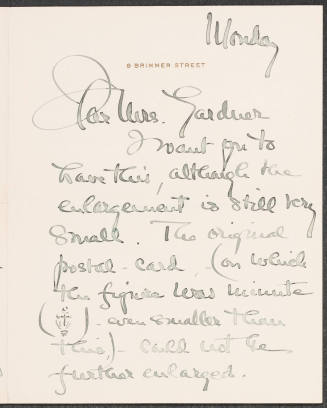 Monday
6 BRIMMER STREET
Dear Mrs. Gardner
I want you to
have this, although the
enlargement is still very
small. The original
postal-card, (on which
the figure was minute
( ) - even smaller than
this,) - could not be
further enlarged.